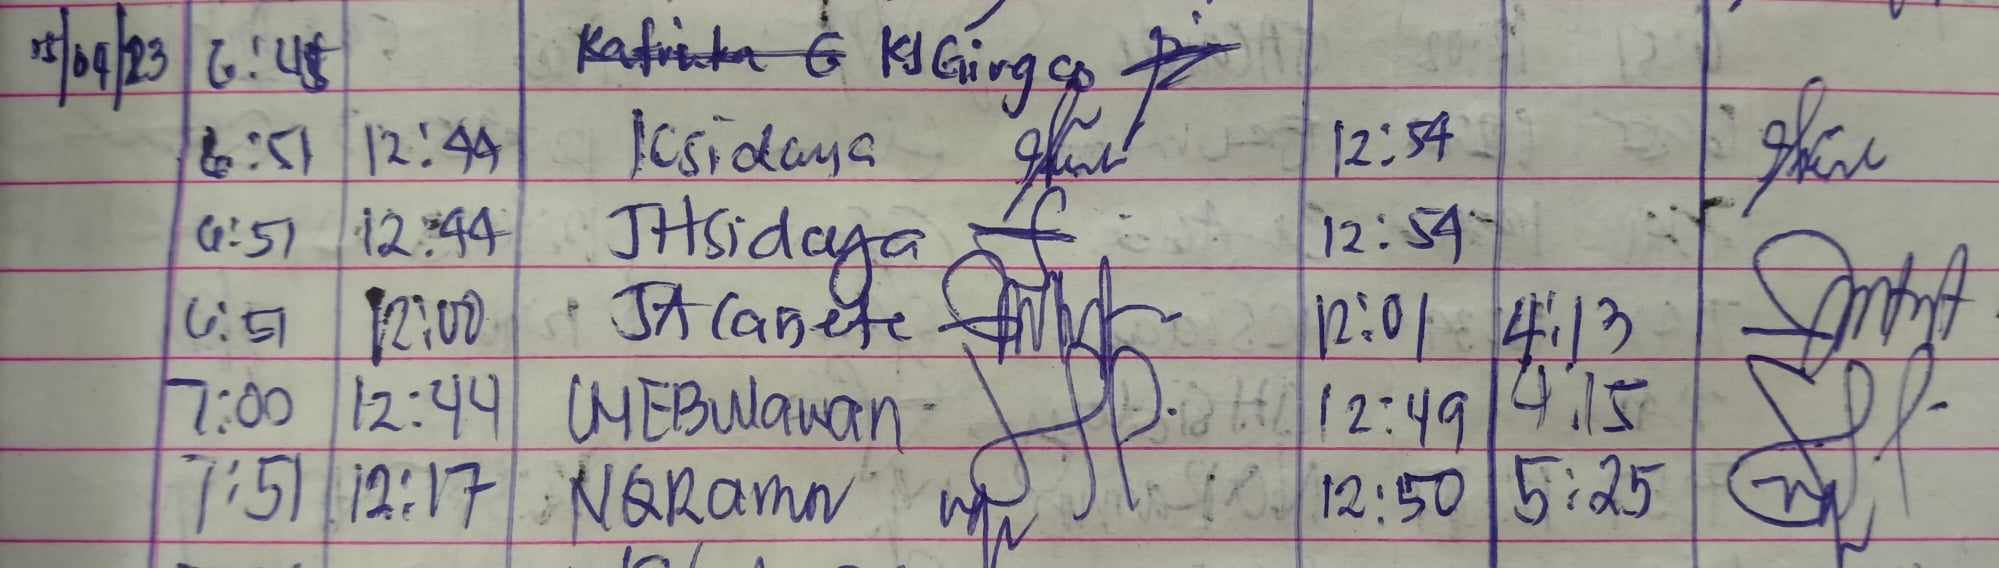 6:48 KJGirgco
6:51 12:44 ICsidaya 12:54
6:51 12:44 JHsidaya 12:54
6:51 12:00 JA Cañete 12:01 4:13
7:00 12:44 CMEBulawan 12:49 4:15
7:51 12:17 NGRamn 12:50 5:25